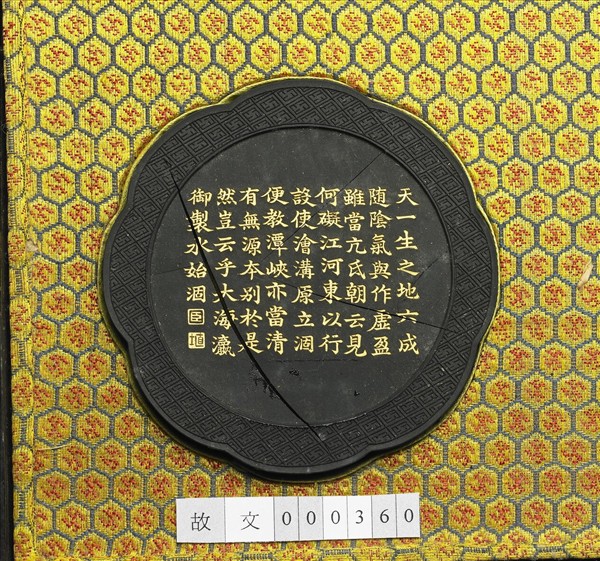 天一生之地六成
随陰氣與作虛盈
雖當亢氐朝云見
何礙江河東以行
設使澮溝原立涸
便教潭峽亦當清
有無源夲别於是
然豈云乎大海瀛
御製水始涸
臣
故文000360